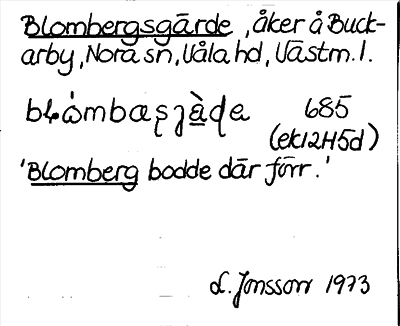 Blombergsgärde, åker å Buck-
arby, Nora sn, Våla hd, Västm. l.
685
(ek12H5d)
'Blomberg bodde där förr.'
L. Jonsson 1973